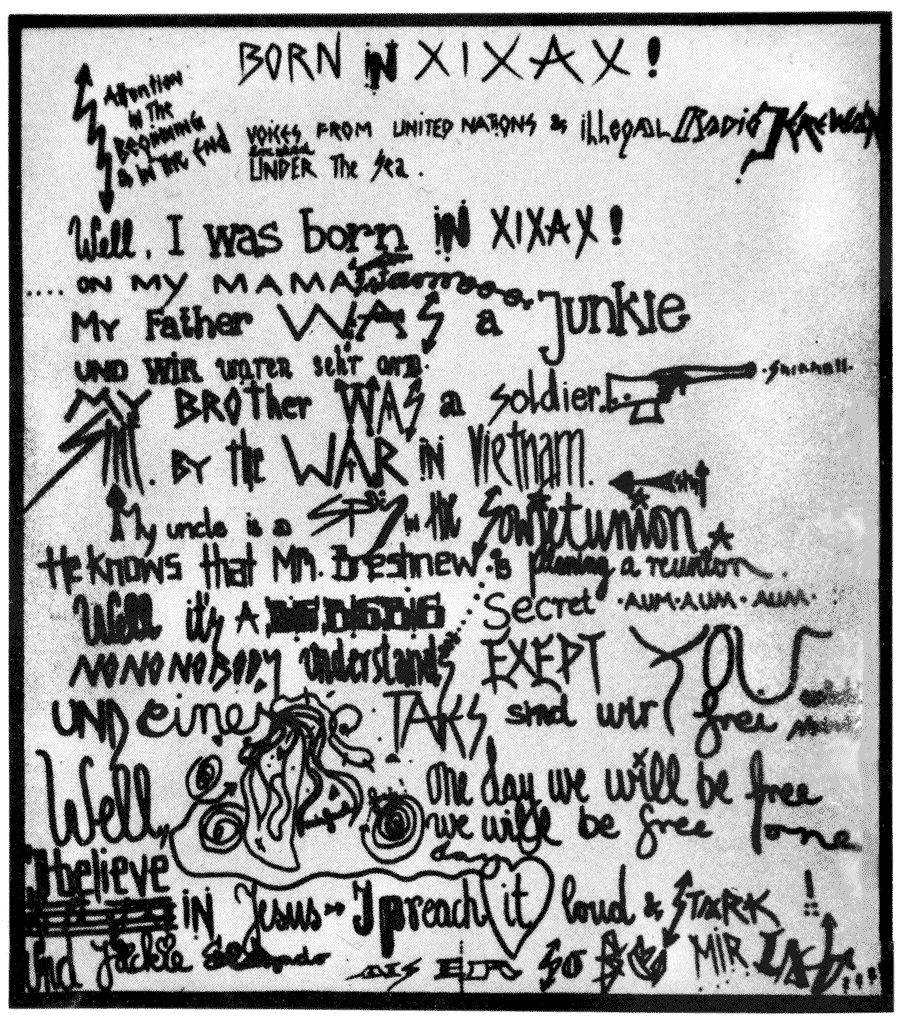 BORN IN XIXAX!
Attention
in The
Beginning
& in the End
VOICES FROM UNITED NATIONS & illEGAL Radio JEREWAN
UNDER The Sea.
Well, I was born IN XIXAX!
.... ON MY MAMA's
My Father WAS a Junkie
UND WIR waren sehr arm.
MY BROTher WAS a soldier.
still. BY the WAR IN Vietnam.
My uncle is a SPY in the Sowjetunion
He knows that Mr. Breshnew is planing a reunion.
Well it's A BIG BIG BIG Secret ·AUM·AUM·AUM·
NO NO NOBODY understands EXEPT YOU
UND eines TAGES sind wir frei
Well, One day we will be free
we will be free one
day
I believe
IN Jesus I preach it loud & STARK !
und Jackie
BIS ER SO BEI MIR LAG....